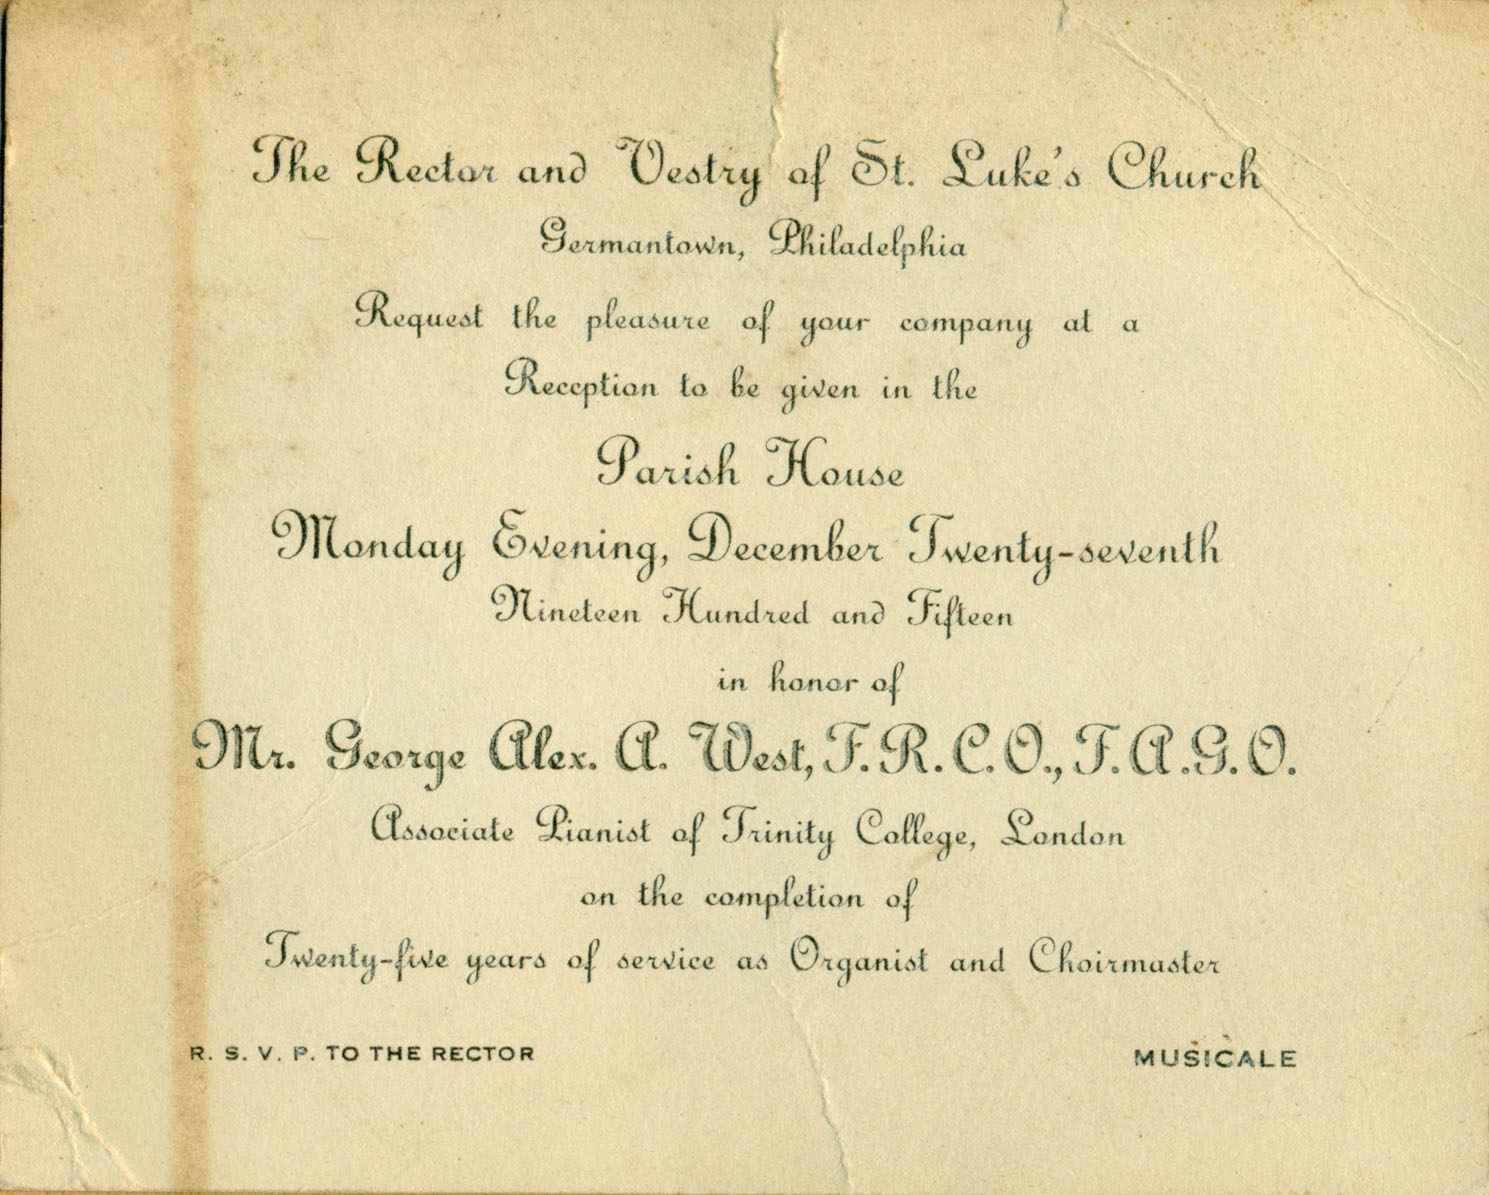 The Rector and Vestry of St. Luke's Church
Germantown, Philadelphia
Request the pleasure of your company at a
Reception to be given in the
Parish House
Monday Evening, December Twenty-seventh
Nineteen Hundred and Fifteen
in honor of
Mr. George Alex. A. West, F.R.C.O., F.A.G.O.
Associate Pianist of Trinity College, London
on the completion of
Twenty-five years of service as Organist and Choirmaster
R. S. V. P. TO THE RECTOR
MUSICALE